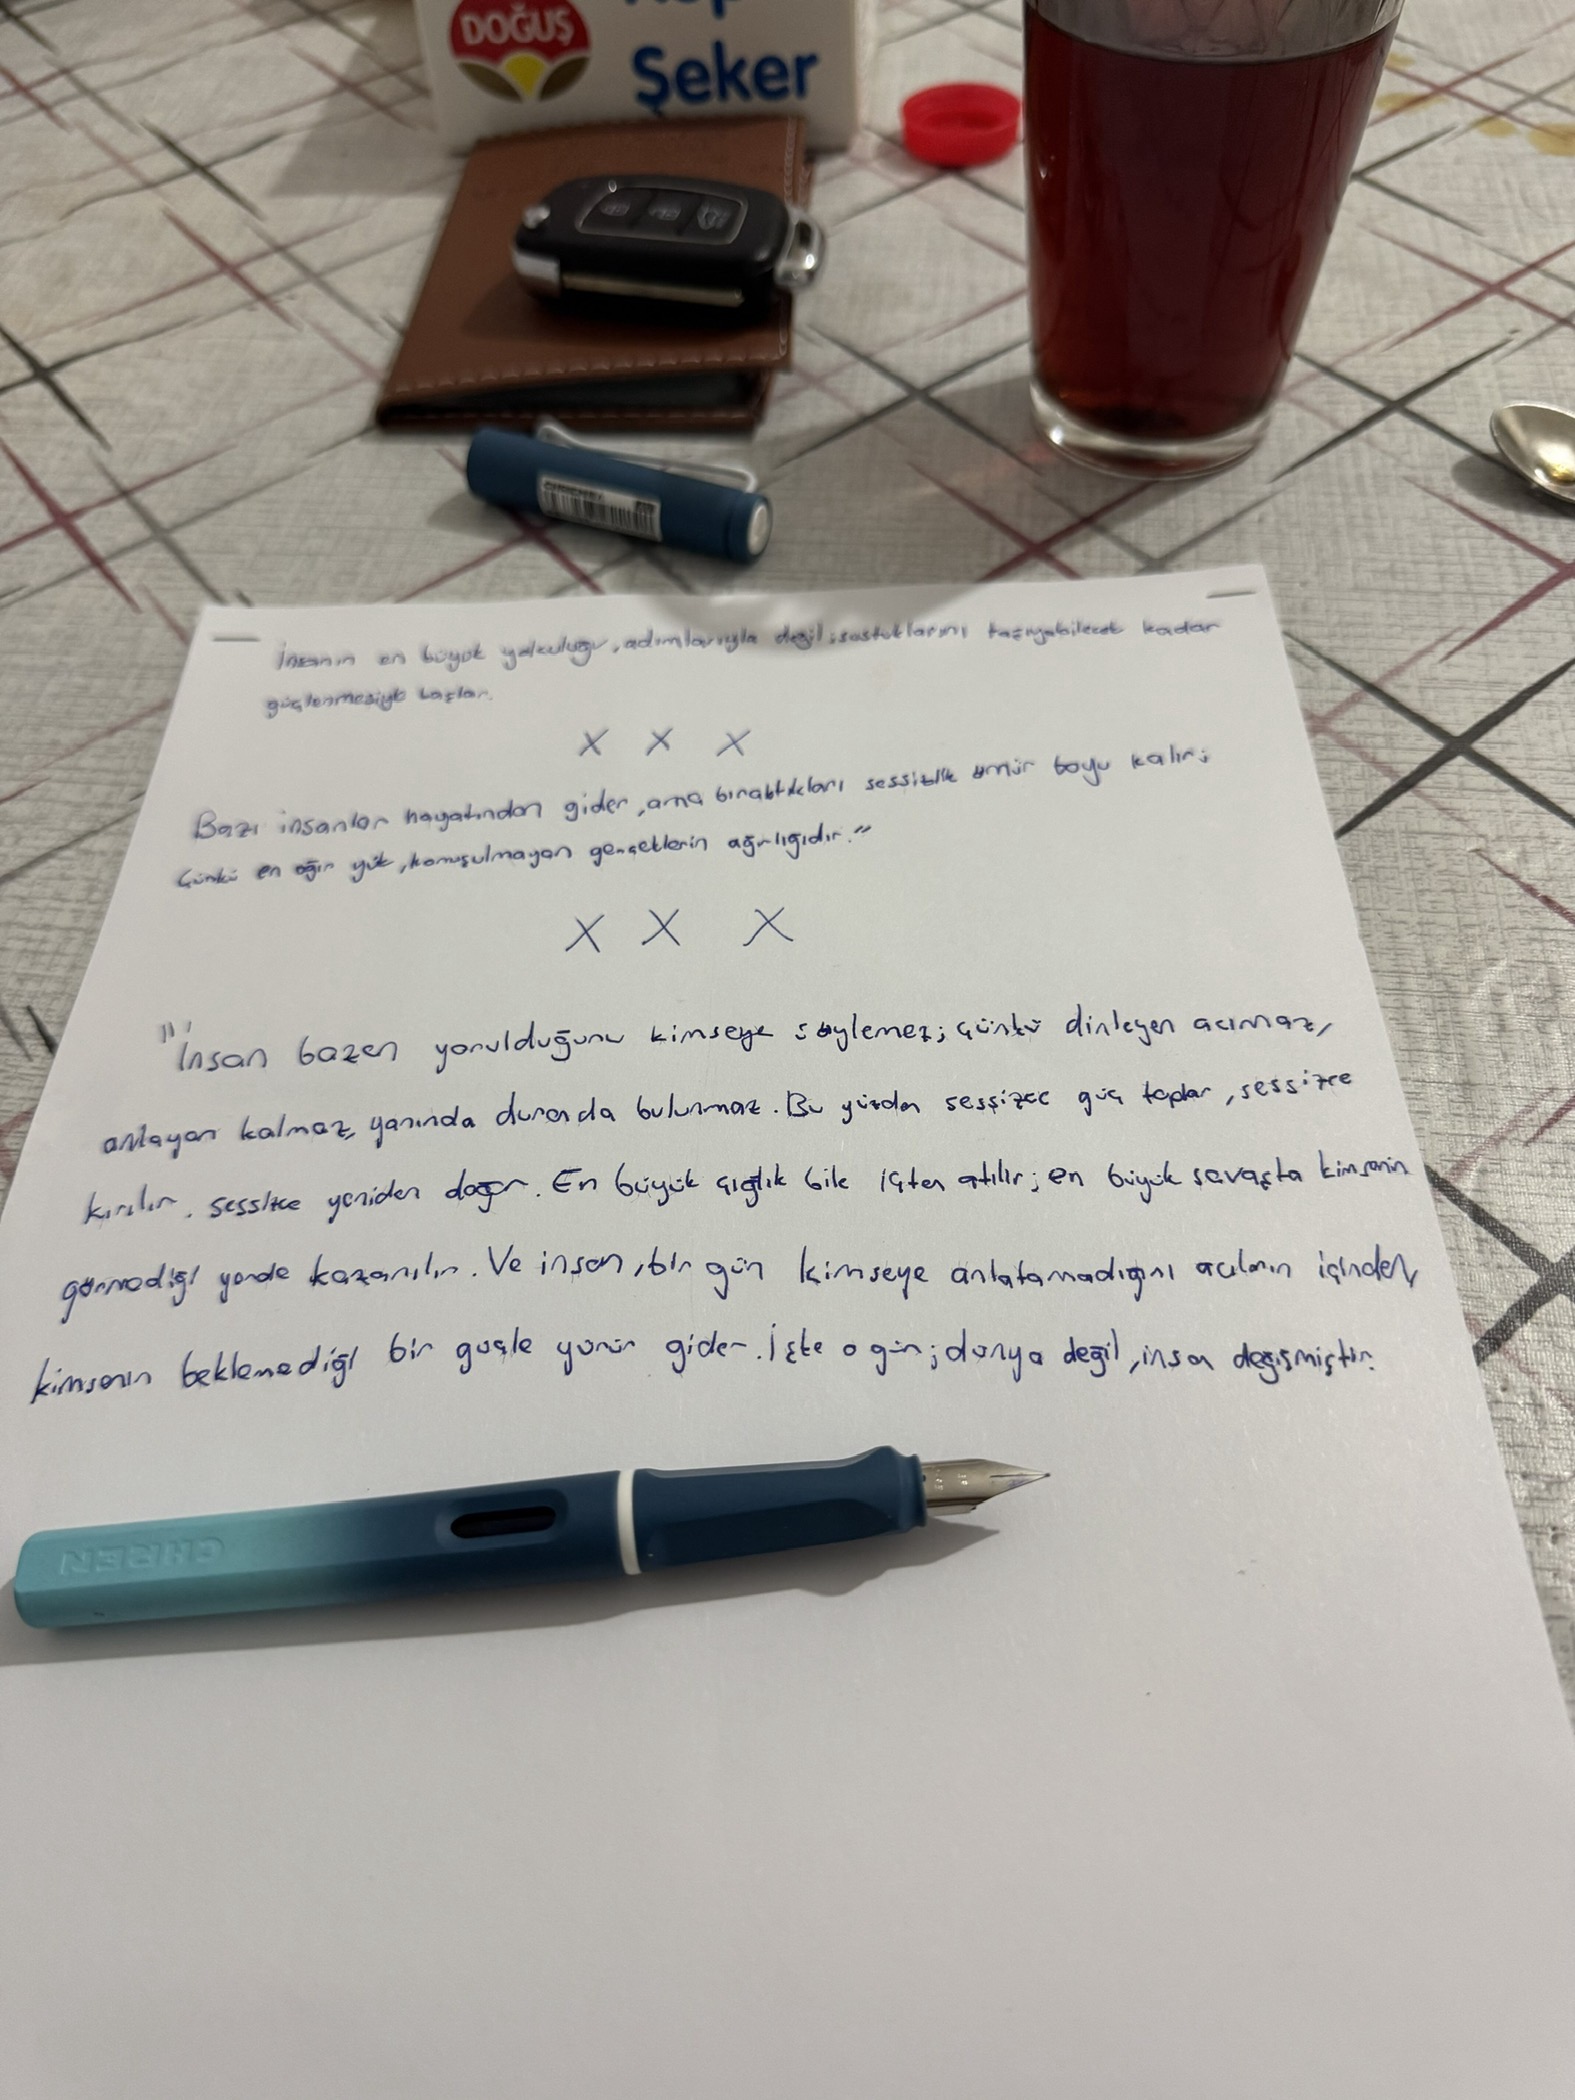 DOĞUŞ
Şeker
İnsanın en büyük yolculuğu, adımlarıyla değil; sustuklarını taşıyabilecek kadar
güçlenmesiyle başlar.
X X X
Bazı insanlar hayatından gider, ama bıraktıkları sessizlik ömür boyu kalır;
Çünkü en ağır yük, konuşulmayan gerçeklerin ağırlığıdır."
X X X
"İnsan bazen yorulduğunu kimseye söylemez; çünkü dinleyen acımaz,
anlayan kalmaz, yanında duranda bulunmaz. Bu yüzden sessizce güç toplar, sessizce
kırılır, sessizce yeniden doğar. En büyük çığlık bile içten atılır; en büyük savaşta kimsenin
görmediği yerde kazanılır. Ve insan, bir gün kimseye anlatamadığını acıların içinden,
kimsenin beklemediği bir güçle yürür gider. İşte o gün; dünya değil, insan değişmiştir.
CHREN